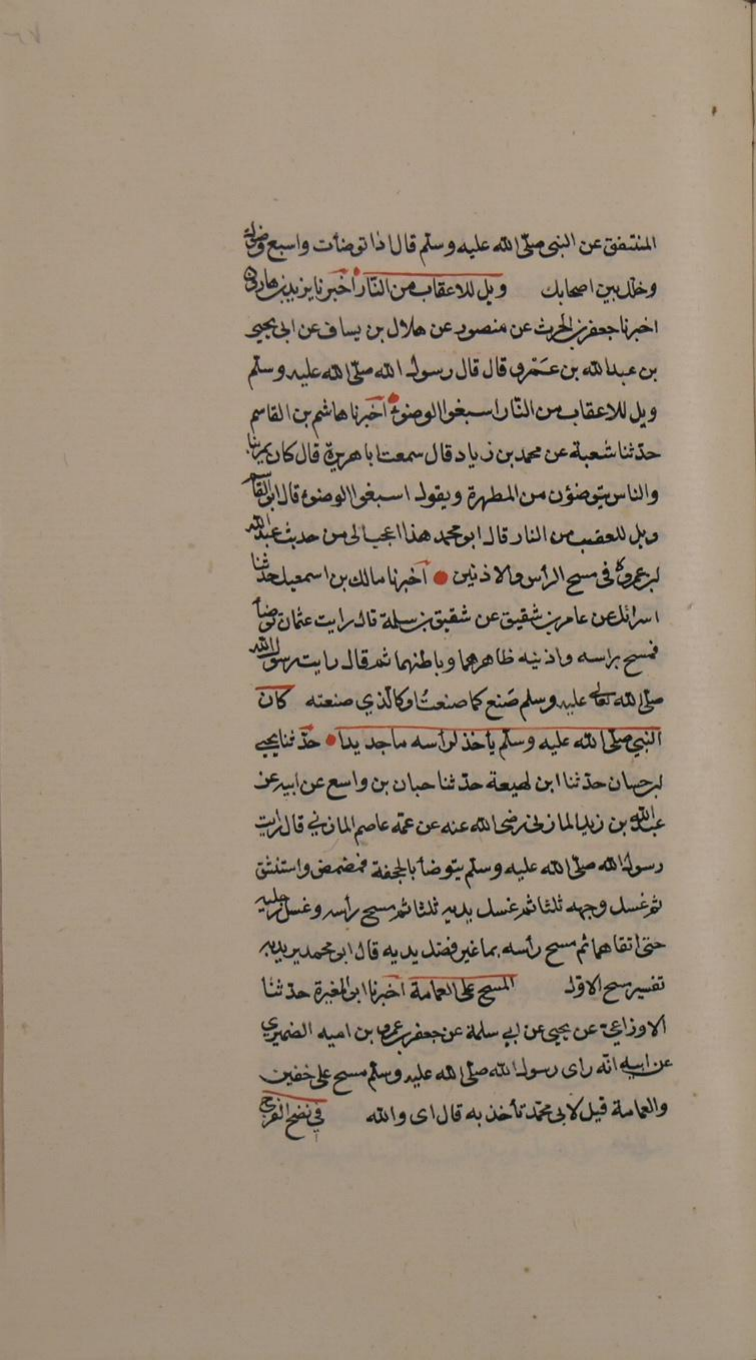 المنتفق عن النبي صلى الله عليه وسلم قال اذا توضأت واسبغ وضوك
وخلل بين اصحابك ويل للاعقاب من النار اخبرنا يزيد بن هارون
اخبرنا جعفر بن الحرث عن منصور عن هلال بن يساف عن ابى يحيى
بن عبد الله بن عمرو قال قال رسول الله صلى الله عليه وسلم
ويل للاعقاب من النار اسبغوا الوضوء اخبرنا هاشم بن القاسم
حدثنا شعبة عن محمد بن زياد قال سمعت ابا هريرة قال كان يمر بنا
والناس يتوضؤن من المطهرة ويقول اسبغوا الوضوء قال ابو القاسم
ويل للعقب من النار قال ابو محمد هذا اعجب الى من حديث عبد الله
بن عمرو فى مسح الرأس والاذنين اخبرنا مالك بن اسمعيل حدثنا
اسرائل عن عامر بن شقيق عن شقيق بن سلمة قال رايت عثمان توضأ
فمسح براسه واذنيه ظاهرهما وباطنهما ثم قال رايت رسول الله
صلى الله تعالى عليه وسلم صنع كما صنعت او كالذي صنعته كان
النبي صلى الله عليه وسلم يأخذ لرأسه ماجديدا حدثنا يحيى
بن حسان حدثنا ابن لهيعة حدثنا حبان بن واسع عن ابيه عن
عبد الله بن زيد المازنى رضى الله عنه عن عمه عاصم المازني قال رايت
رسول الله صلى الله عليه وسلم يتوضأ بالجحفة فمضمض واستنشق
ثم غسل وجهه ثلثا ثم غسل يديه ثلثا ثم مسح رأسه وغسل رجليه
حتى انقاهما ثم مسح رأسه بما غير فضل يديه قال ابو محمد يريد به
تفسير مسح الاول المسح على العمامة اخبرنا ابو المغيرة حدثنا
الاوزاعي عن يحيى عن ابي سلمة عن جعفر بن عمرو بن اميه الضميري
عن ابيه انه راى رسول الله صلى الله عليه وسلم مسح على خفين
والعمامة قيل لابى محمد تأخذ به قال اى والله في نضح الفرج